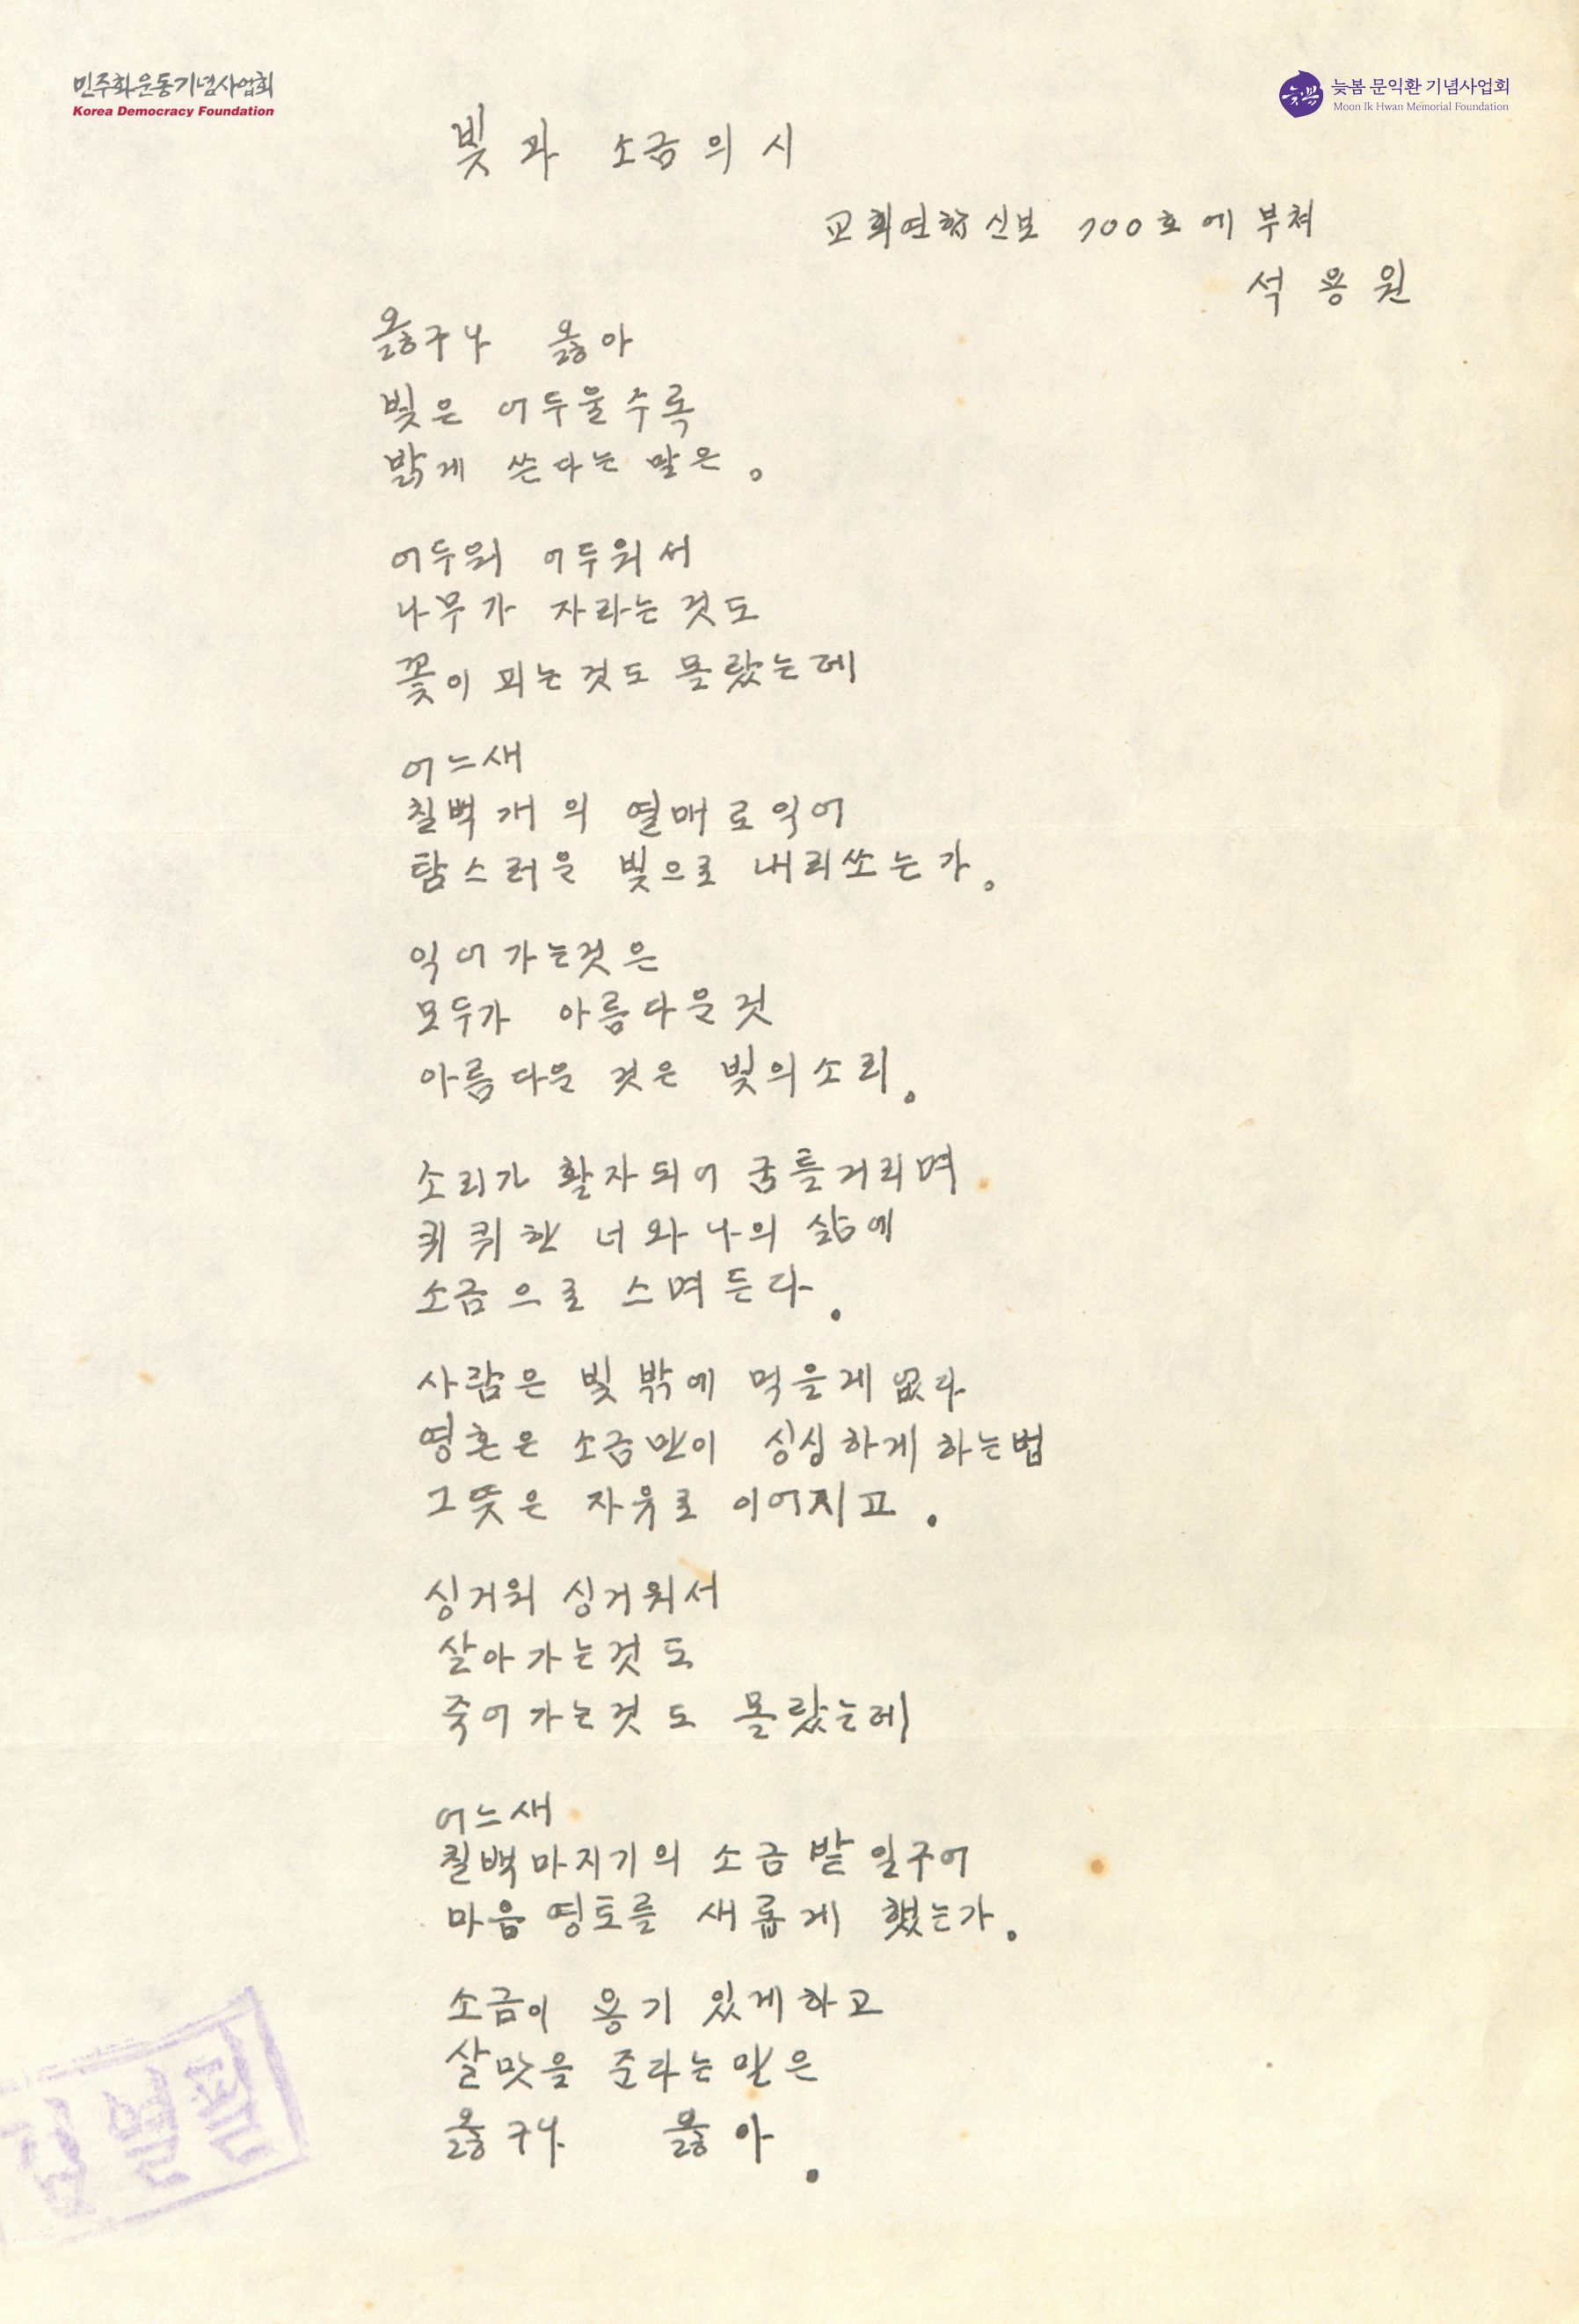 민주화운동기념사업회
Korea Democracy Foundation
늦봄
늦봄 문익환 기념사업회
Moon Ik Hwan Memorial Foundation
빛과 소금의 시
교회연합신보 700호에 부쳐
석용원
옳구나 옳아
빛은 어두울수록
밝게 쏜다는 말은.
어두워 어두워서
나무가 자라는 것도
꽃이 피는 것도 몰랐는데
어느새
칠백개의 열매로 익어
탐스러운 빛으로 내리쏘는가.
익어가는것은
모두가 아름다운것
아름다운 것은 빛의 소리.
소리가 활자되어 굼틀거리며
퀴퀴한 너와 나의 삶에
소금으로 스며든다.
사람은 빛 밖에 먹을게 없다
영혼은 소금만이 싱싱하게 하는법
그뜻은 자유로 이어지고.
싱거워 싱거워서
살아가는것도
죽어가는것도 몰랐는데
어느새
칠백마지기의 소금밭 일구어
마음 영토를 새롭게 했는가.
소금이 용기 있게하고
살맛을 준다는 말은
옳구나 옳아.
검열필